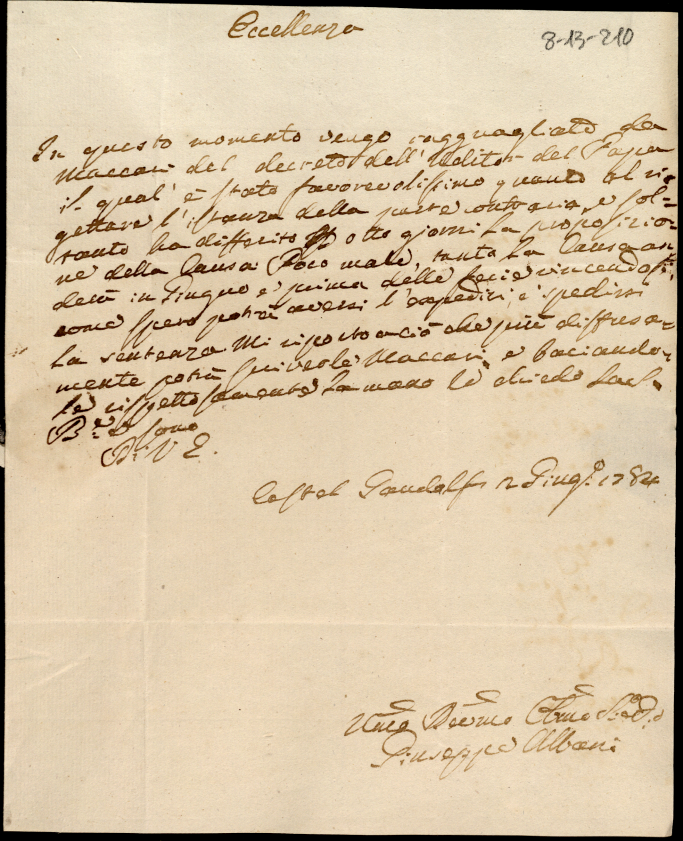 Eccellenza
8-13-210
In questo momento vengo ragguagliato da
Maccari del decreto dell'Uditor del Papa
il qual' è stato favorevolissimo quanto al ri=
gettare l'istanza della parte contraria, e sol=
tanto ha differito otto giorni la proposizio=
ne della Causa Poco male, tanto la Causa an=
derà in Giugno e prima delle ferie vincendosi
come spero potrà aversi l'expediri, e spedirsi
la sentenza. Mi riporto a ciò che più diffusa=
mente potrà scriverle Maccari, e baciando=
le rispettosamente la mano le chiedo la S.
B.e e sono
Di V E.
Castel Gandolfo 2 Giug.o 1784
Umo Devmo Obmo
Giuseppe Albani